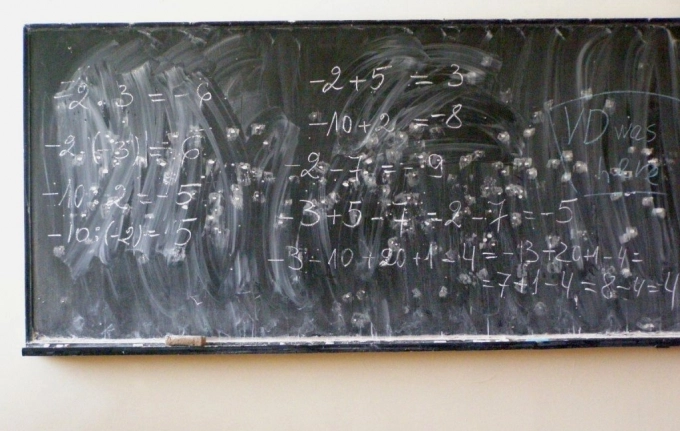 -2 · 3 = -6
-2 · (-3) = 6
-10 : 2 = -5
-10 : (-2) = 5
-2+5 = 3
-10+2 = -8
-2 - 7 = -9
-3+5 - 7 = 2 - 7 = -5
-3 - 10 + 20 + 1 - 4 = -13+20+1-4=
=7+1-4 = 8-4=4
VD was
here